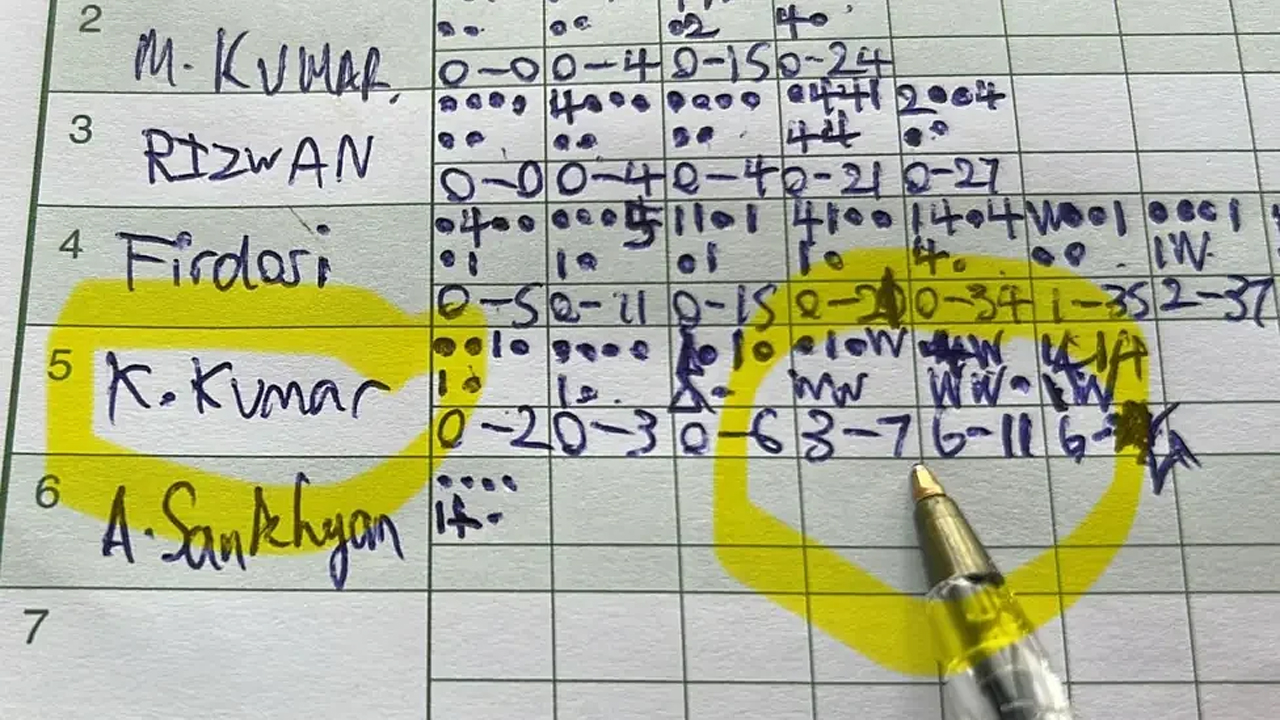 2 M. KUMAR. •• •• •2 4•
0-0 0-4 0-15 0-24
3 RIZWAN •••• 4••• •••• •441 2••4
•• •• •• 44 ••
0-0 0-4 0-4 0-21 0-27
4 Firdosi •4•• 11•1 41•• 14•4 W••1 •••1
•1 1• •1 1• 4• •• 1W
0-5 0-11 0-15 0-34 1-35 2-37
5 K. Kumar ••1• •••• •1• •1•W
1• 1• WW WW•
0-2 0-3 0-6 3-7 6-11 6-
6 A. Sankhyan ••••
7